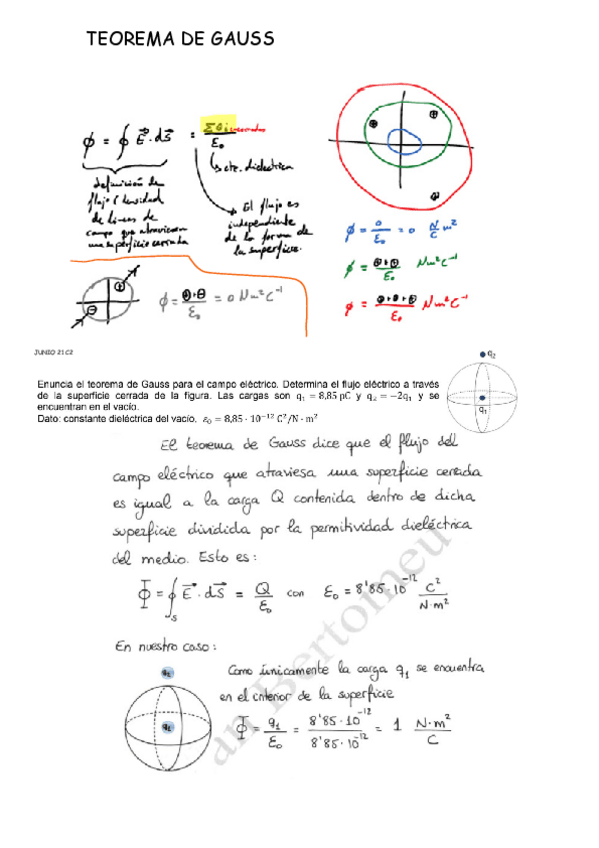 TEOREMA DE GAUSS
ϕ = ∮ E⃗·dS⃗ = ΣQi encerradas / ε₀
↳ cte. dieléctrica
definición de
flujo (densidad
de líneas de
campo que atraviesan
una superficie cerrada
El flujo es
independiente
de la forma de
la superficie.
ϕ = 0/ε₀ = 0 N/C m²
ϕ = ⊕+⊕/ε₀ Nm²C⁻¹
ϕ = ⊕+⊕+⊕/ε₀ Nm²C⁻¹
ϕ = ⊕+⊖/ε₀ = 0 Nm²C⁻¹
JUNIO 21 C2
Enuncia el teorema de Gauss para el campo eléctrico. Determina el flujo eléctrico a través
de la superficie cerrada de la figura. Las cargas son q₁ = 8,85 pC y q₂ = −2q₁ y se
encuentran en el vacío.
Dato: constante dieléctrica del vacío, ε₀ = 8,85 · 10⁻¹² C²/N · m²
q₂
q₁
El teorema de Gauss dice que el flujo del
campo eléctrico que atraviesa una superficie cerrada
es igual a la carga Q contenida dentro de dicha
superficie dividida por la permitividad dieléctrica
del medio. Esto es:
Φ = ∮S E⃗·dS⃗ = Q/ε₀ con ε₀ = 8'85·10⁻¹² C²/N·m²
En nuestro caso:
q₂
q₁
Como únicamente la carga q₁ se encuentra
en el interior de la superficie
Φ = q₁/ε₀ = 8'85·10⁻¹²/8'85·10⁻¹² = 1 N·m²/C
an Bertomeu